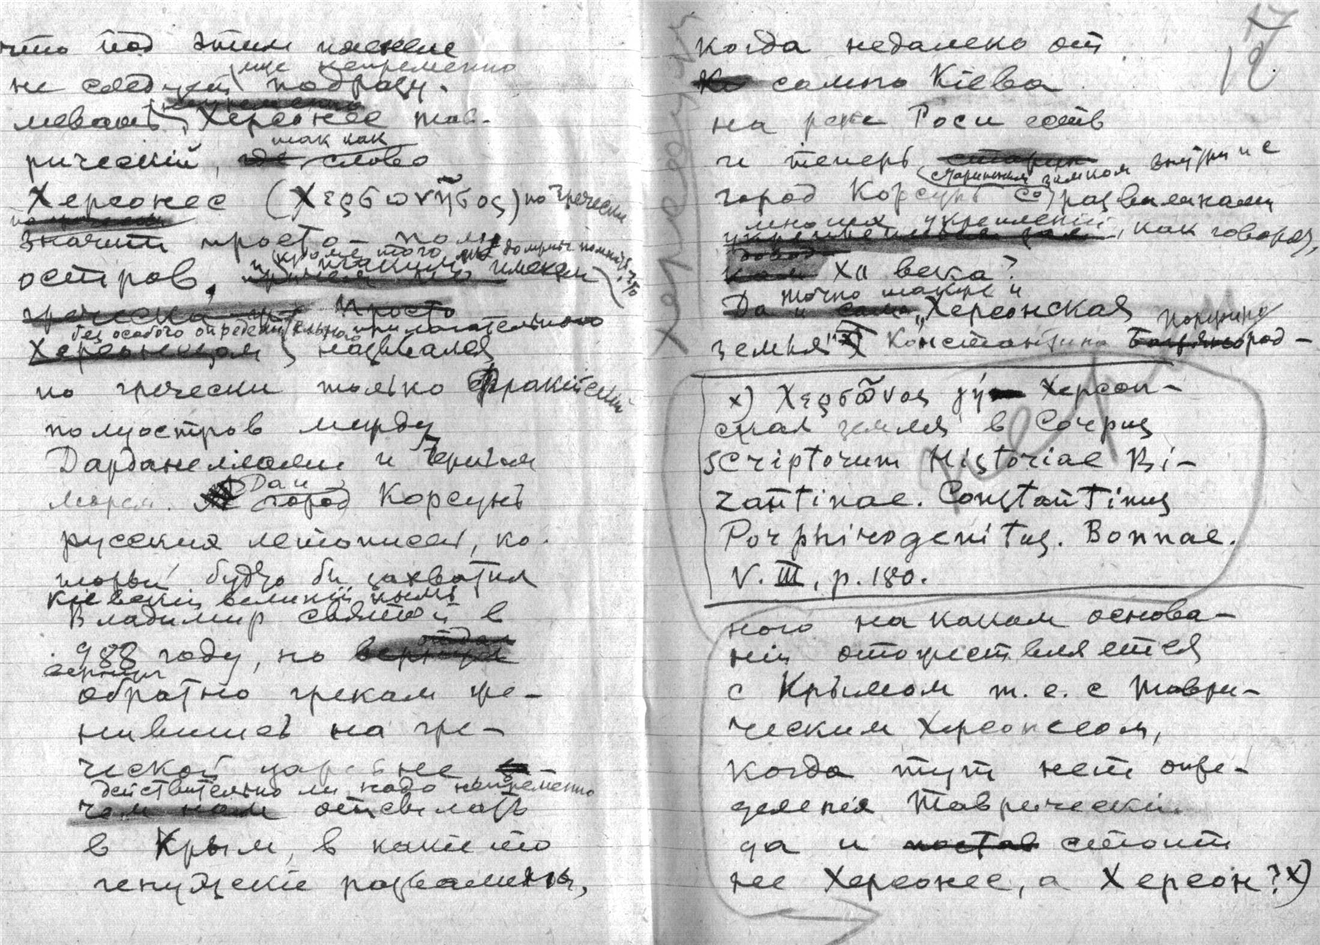 что под этим именем
еще непременно
не следует подразу-
мевать Херсонес тав-
так как
рический, где слово
Херсонес (Χερσωνῆσος) по гречески
значит просто полу
остров,
кроме того
имени
гречески просто
без особого определительного прилагательного
Херсонесом назывался
по гречески только Фракийский
полуостров между
Дарданеллами и Черным
морем. Да и
город Корсунь
русския летописей, ко-
торый будто бы захватил
киевский великий князь
Владимир святой в
988 году, но вернул
вернул
обратно грекам же-
нившись на гре-
ческой царевне
действительно ли надо непременно
чем нам отсылать
в Крым, в какие то
генуэзские развалины,
17
18
когда недалеко от
самого Кіева
на реке Роси есть
и теперь внутри и с
старинным замком
город Корсунь со развалинами
многих укреплений, как говорят,
XII века?
точно также и
Да и сама „Херсонская
земля" х) Константина Багрянород-
Порфиро
х) Χερσῶνος γή Херсон-
ская земля в Corpus
Scriptorum Historiae Bi-
zantinae. Constantinus
Porphirogenitus. Bonnae.
V. III, p. 180.
ного на каком основа-
нии отожествляется
с Крымом т. е. с Таври-
ческим Херсонесом,
когда тут нет опре-
деления Таврический
да и постав стоит
не Херсонес, а Херсон? х)